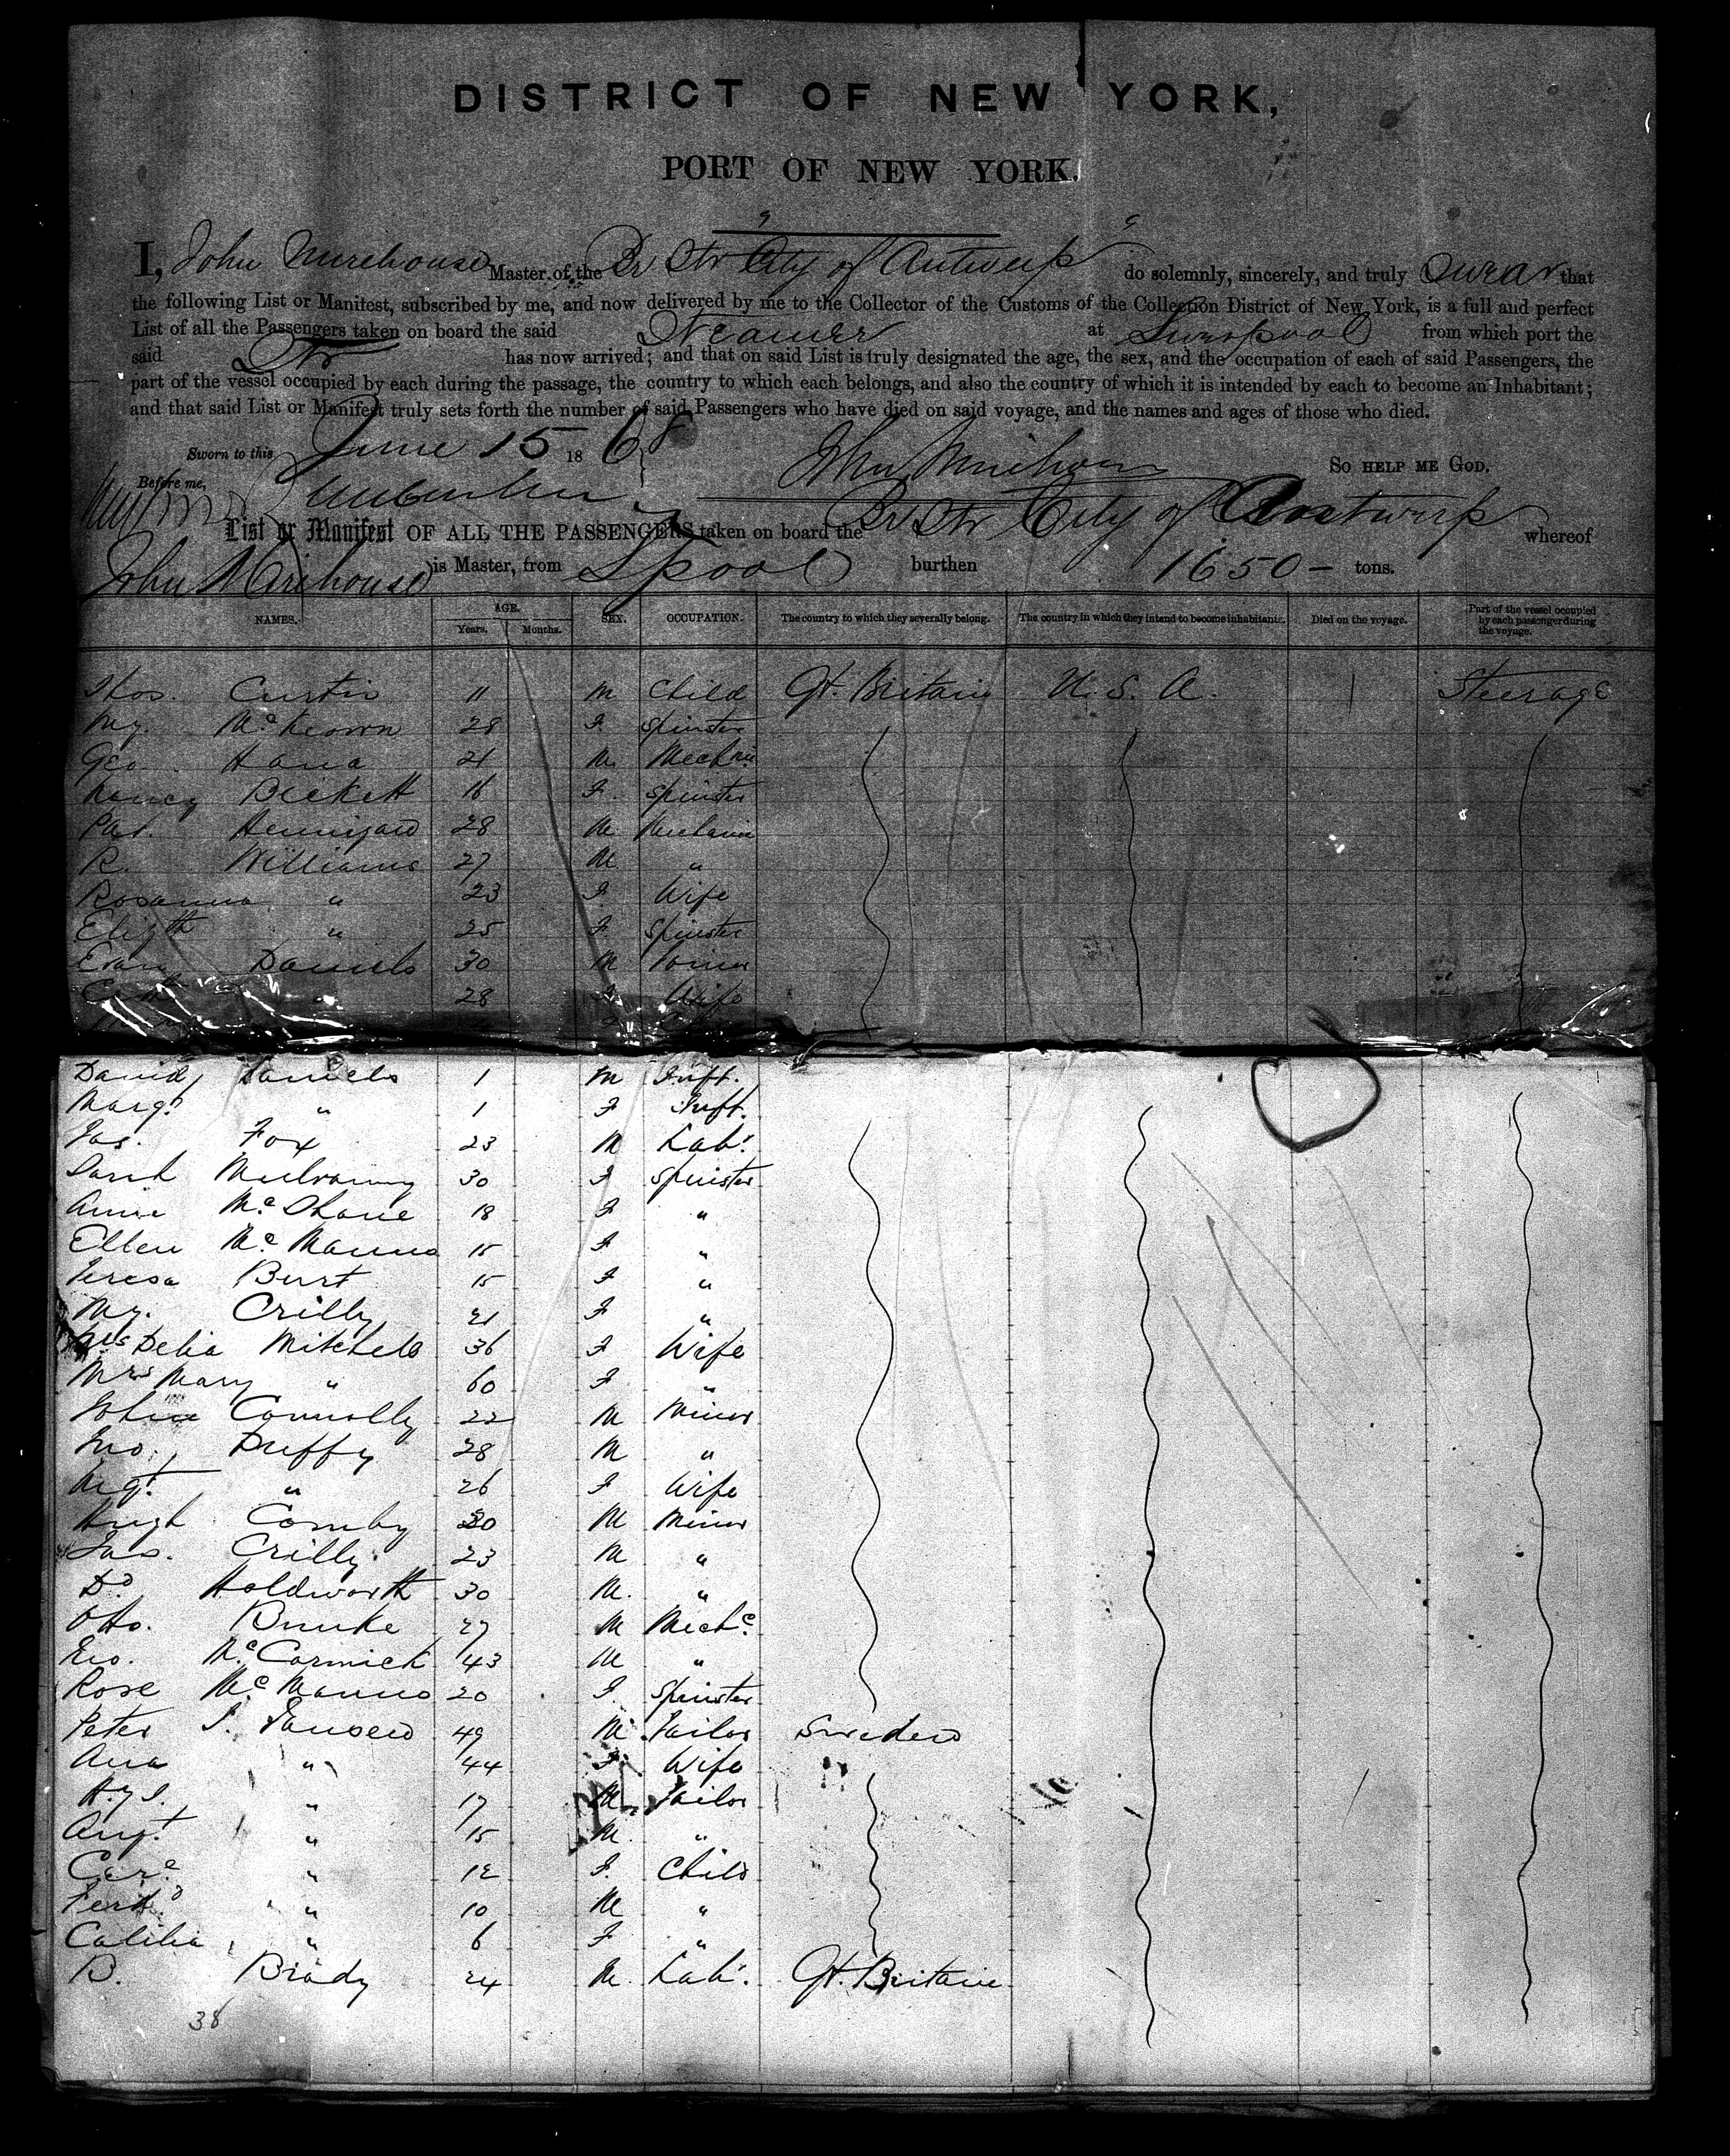 DISTRICT OF NEW YORK,
PORT OF NEW YORK.
I, John Mirehouse Master of the Br Str City of Antwerp do solemnly, sincerely, and truly Swear that
the following List or Manifest, subscribed by me, and now delivered by me to the Collector of the Customs of the Collection District of New York, is a full and perfect
List of all the Passengers taken on board the said Steamer at Liverpool from which port the
said Str has now arrived; and that on said List is truly designated the age, the sex, and the occupation of each of said Passengers, the
part of the vessel occupied by each during the passage, the country to which each belongs, and also the country of which it is intended by each to become an Inhabitant;
and that said List or Manifest truly sets forth the number of said Passengers who have died on said voyage, and the names and ages of those who died.
Sworn to this June 15 1868 John Mirehouse SO HELP ME GOD.
Before me,
List or Manifest OF ALL THE PASSENGERS taken on board the Br Str City of Antwerp whereof
John Mirehouse is Master, from Lpool burthen 1650 — tons.
NAMES. AGE. Years. Months. SEX. OCCUPATION. The country to which they severally belong. The country in which they intend to become inhabitants. Died on the voyage. Part of the vessel occupied by each passenger during the voyage.
Thos. Curtin 11 M Child Gt. Britain U. S. A. Steerage
My. McKeown 28 F. Spinster
Geo. Hana 21 M. Mechnic
Nancy Beckett 16 F. Spinster
Pat. 28 M. Mechanic
R. Williams 27 M "
Rosanna " 23 F. Wife
Elizth " 25 F. Spinster
Evan Daniels 30 M
28 F Wife
David Daniels 1 M Inft.
Margt. " 1 F Inft.
Jas. Fox 23 M Labr.
Sarah Mulvanny 30 F Spinster
Annie McShane 18 F "
Ellen McManus 15 F "
Teresa Burt 15 F "
My. Crilly 21 F "
Mrs Delia Mitchell 36 F Wife
Mrs Mary " 60 F "
John Connolly 22 M Miner
Jno. Duffy 28 M "
Mgt. " 26 F Wife
Hugh Comby 20 M Miner
Jas. Crilly 23 M "
Dd Holdworth 30 M. "
Otto. Bunke 27 M Mechc.
Geo. McCormick 43 M "
Rose McManus 20 F. Spinster
Peter J. Jansen 49 M Tailor Sweden
Ana " 44 F. Wife
Hy J. " 17 M. Tailor
Augt. " 15 M. "
Care. " 12 F. Child
Ferdd. " 10 M "
Calilia " 6 F "
B. Brady 24 M. Labr. Gt. Britain
38